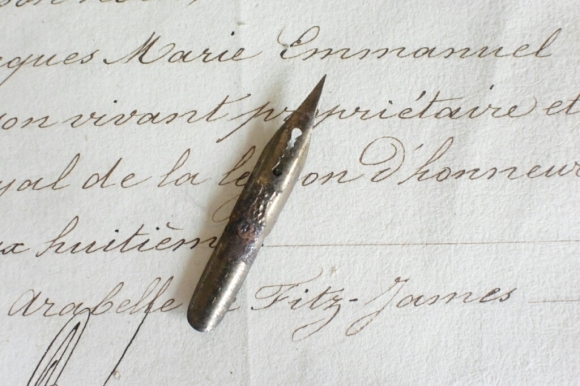 ques Marie Emmanuel
on vivant propriétaire et
yal de la légion d'honneur
x huitième
Arabelle Fitz-James